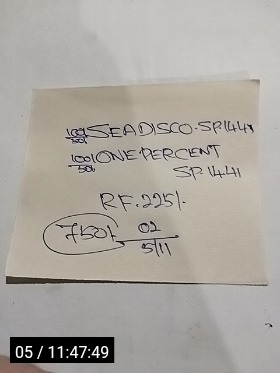 100/50/ SEADISCO-SP.1441
100/50/ ONE PERCENT
SP.1441
RF.225/.
750/. 02
5/11
05 / 11:47:49